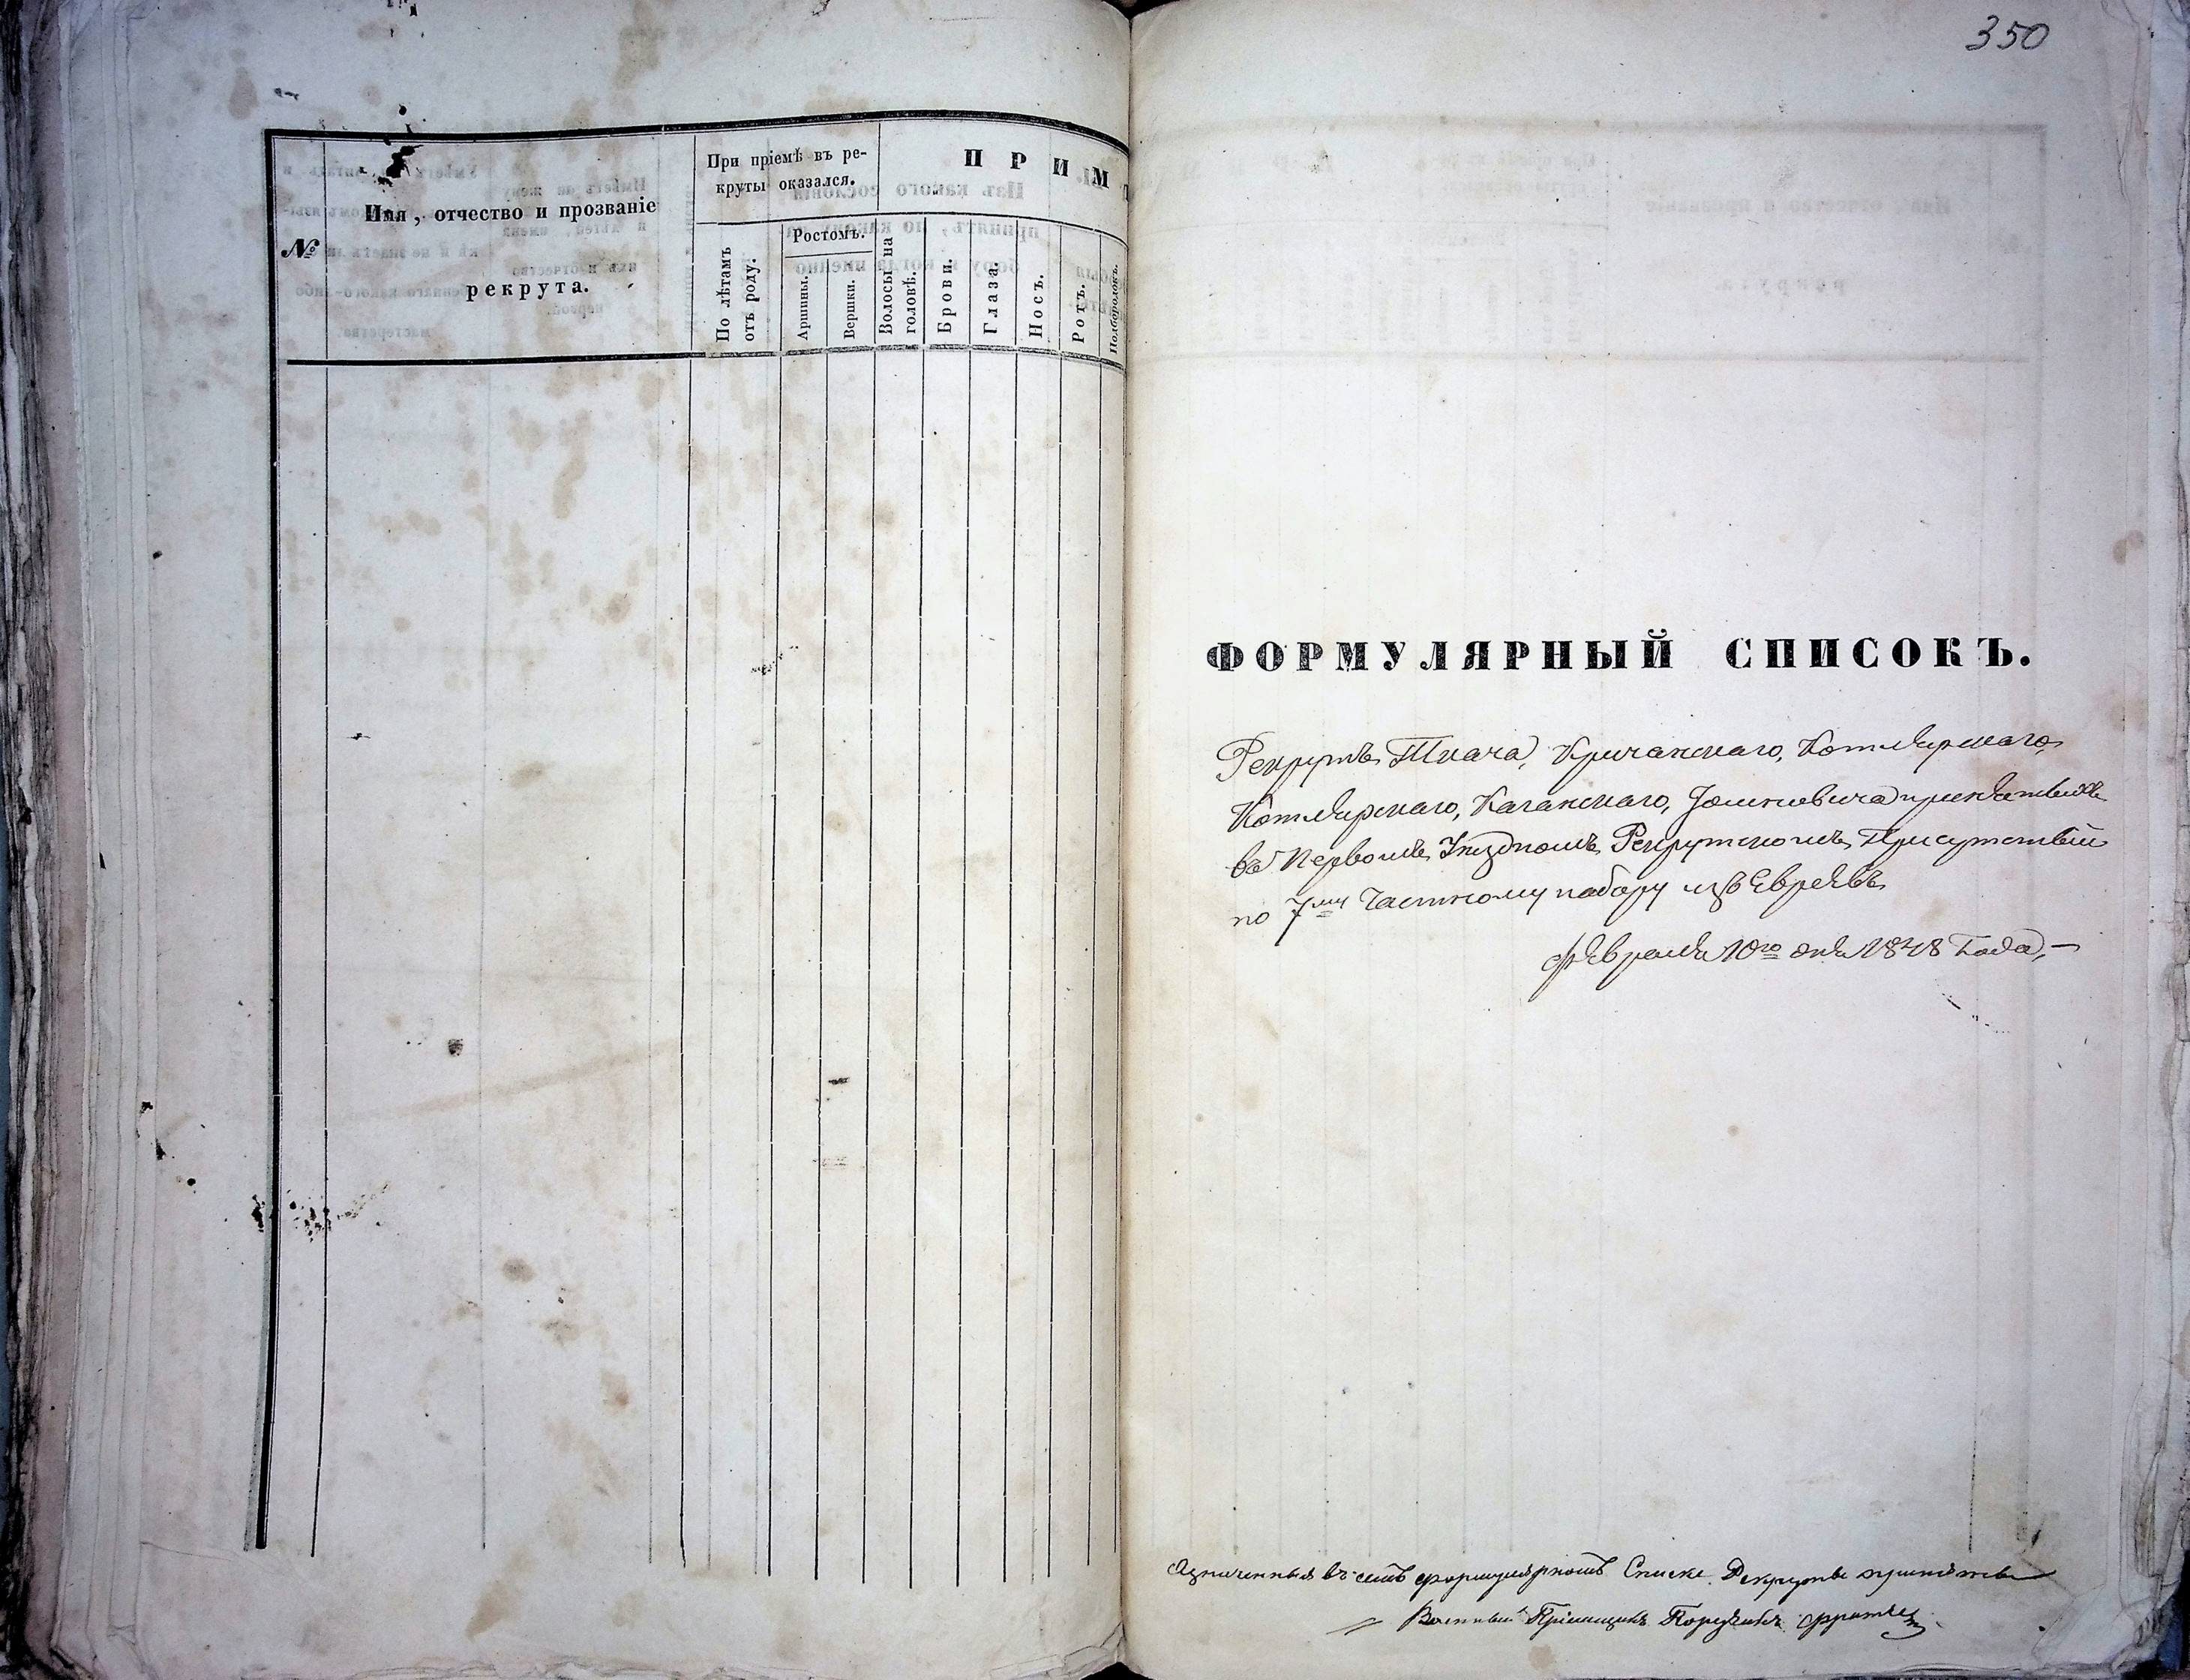 350
При пріемѣ въ ре-
круты оказался.
ПРИМ
Имя, отчество и прозваніе
рекрута.
№
По лѣтамъ
отъ роду.
Ростомъ.
Аршины.
Вершки.
Волосы на
головѣ.
Брови.
Глаза.
Носъ.
Ротъ.
Подбородокъ.
ФОРМУЛЯРНЫЙ СПИСОКЪ.
Рекрутъ Ткача, Кричанскаго, Котлярскаго,
Котлярскаго, Каганскаго, принятыхъ
въ Первомъ Уѣздномъ Рекрутскомъ Присутствіи
по 7му Частному набору изъ Евреевъ
Февраля 10го дня 1848 Года,—
Озпаченныя въ семъ формулярномъ Списке Рекруты приняты
Военный Пріемщикъ Поручикъ